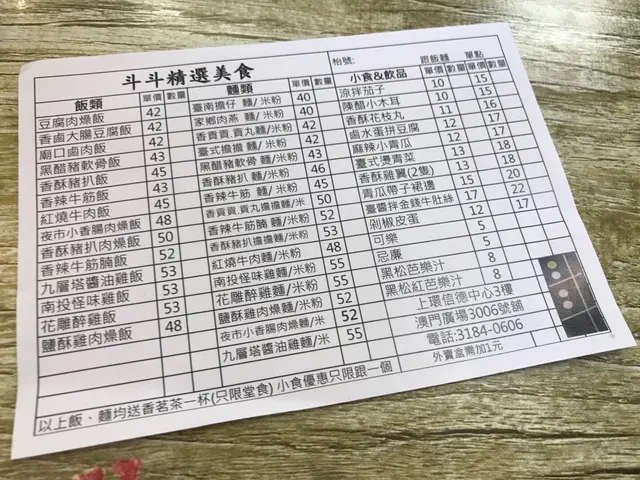 斗斗精選美食
飯類 單價 數量
豆腐肉燥飯 42
香鹵大腸豆腐飯 42
廟口鹵肉飯 42
黑醋豬軟骨飯 43
香酥豬扒飯 45
香辣牛筋飯 43
紅燒牛肉飯 45
夜市小香腸肉燥飯 48
香酥豬扒肉燥飯 50
香辣牛筋腩飯 52
九層塔醬油雞飯 53
南投怪味雞飯 53
花雕醉雞飯 53
鹽酥雞肉燥飯 48
麵類 單價 數量
臺南擔仔 麵/米粉 40
家鄉肉燕 麵/米粉 40
香貢貢.貢丸麵/米粉 42
臺式擔擔 麵/米粉 42
黑醋豬軟骨 麵/米粉 43
香酥豬扒 麵/米粉 46
香辣牛筋 麵/米粉 45
香貢貢.貢丸擔擔麵/米粉 50
香辣牛筋腩 麵/米粉 52
香酥豬扒擔擔麵/米粉 53
紅燒牛肉 麵/米粉 48
南投怪味雞麵/米粉 55
花雕醉雞麵/米粉 55
鹽酥雞肉燥麵/米粉 52
夜市小香腸肉燥麵/米 52
九層塔醬油雞麵/米 55
枱號:
跟飯麵 單點
小食&飲品 單價 數量 單價 數量
涼拌茄子 10 15
陳醋小木耳 10 15
香酥花枝丸 11 16
鹵水蛋拼豆腐 12 17
麻辣小青瓜 12 17
臺式燙青菜 13 18
香酥雞翼(2隻) 12 17
青瓜帶子裙邊 15 20
臺醬拌金錢牛肚絲 17 22
剁椒皮蛋 12 17
可樂 5
忌廉 5
黑松芭樂汁 8
黑松紅芭樂汁 8
上環信德中心3樓
澳門廣場3006號舖
電話:3184-0606
外賣盒需加1元
以上飯、麵均送香茗茶一杯(只限堂食) 小食優惠只限跟一個